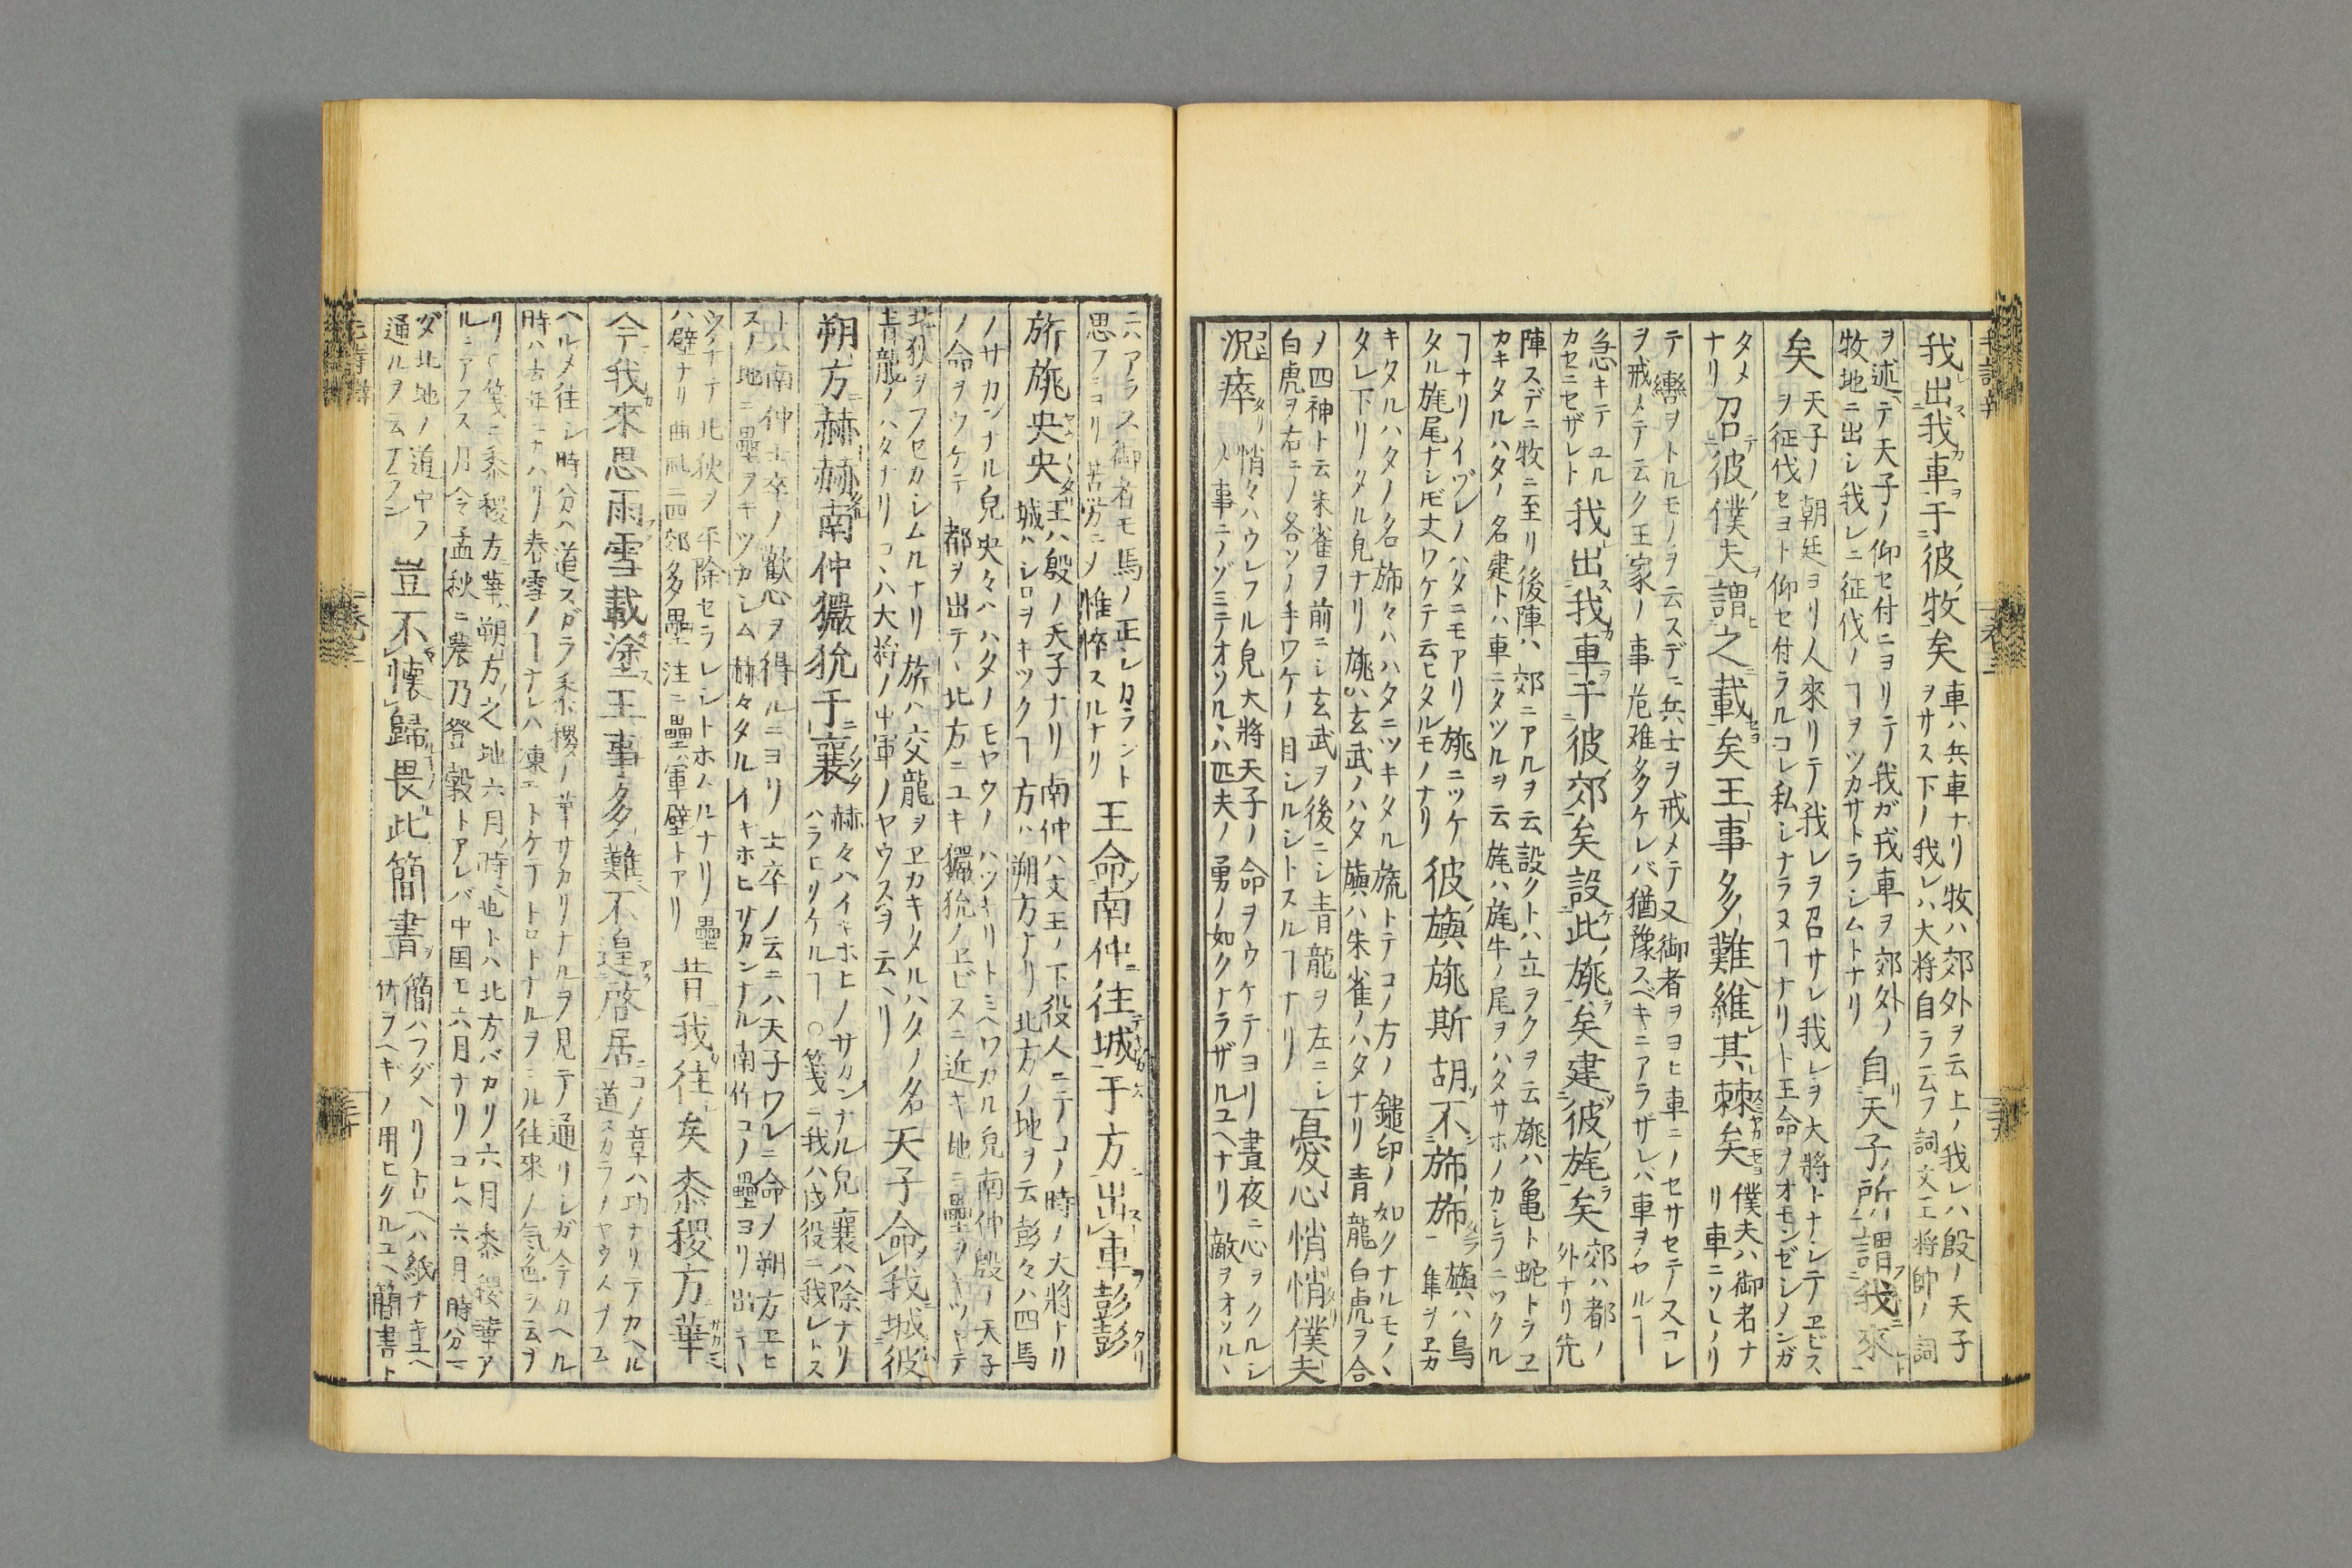 我出我車于彼牧矣 車ハ兵車ナリ牧ハ郊外ヲ云上ノ我レハ殷ノ天子
ヲサス下ノ我レハ大将自ラ云フ詞文王将帥ノ詞
ヲ述テ天子ノ仰セ付ニヨリテ我ガ戎車ヲ郊外ノ
牧地ニ出シ我レニ征伐ノヿヲツカサトラシムトナリ
自天子所謂我來
矣 天子ノ朝廷ヨリ人來リテ我レヲ召サレ我レヲ大將トナシテヱビス
ヲ征伐セヨト仰セ付ラルコレ私シナラヌヿナリト王命ヲオモンゼシノンガ
タメ
ナリ
召彼僕夫謂之載矣王事多難維其棘矣 僕夫ハ御者ナ
リ車ニソレノリ
テ轡ヲトルモノヲ云スデニ兵士ヲ戒メテ又御者ヲヨヒ車ニノセサセテ又コレ
ヲ戒メテ云ク王家ノ事危难多ケレバ猶豫スベキニアラザレバ車ヲヤルヿ
急キテユル
カセニセザレト
我出我車于彼郊矣設此旐矣建彼旄矣 郊ハ都ノ
外ナリ先
陣スデニ牧ニ至リ後陣ハ郊ニアルヲ云設クトハ立ヲクヲ云旐ハ亀ト蛇トラヱ
カキタルハタノ名建トハ車ニタツルヲ云旄ハ旄牛ノ尾ヲハタサホノカシラニツクル
ヿナリイヅレノハタニモアリ旐ニツケ
タル旄尾ナシ𪜈丈ワケテ云ヒタルモノナリ
彼旟旐斯胡不旆旆 旟ハ鳥
隼ヲヱカ
キタルハタノ名旆々ハハタニツキタル旒トテコノ方ノ鑓印ノ如クナルモノヽ
タレ下リタル皃ナリ旐ハ玄武ノハタ旟ハ朱雀ノハタナリ青龍白虎ヲ合
ノ四神ト云朱雀ヲ前ニシ玄武ヲ後ニシ青龍ヲ左ニシ
白虎ヲ右ニノ各ソノ手ワケノ目シルシトスルヿナリ
憂心悄悄僕夫
況瘁 悄々ハウレフル皃大將天子ノ命ヲウケテヨリ晝夜ニ心ヲクルシ
メ事ニノゾミテオソルヽハ匹夫ノ勇ノ如クナラザルユヘナリ敵ヲオソルヽ
ニハアラス御者モ馬ノ正シカラント
思フヨリ苦労ニノ惟悴スルナリ
王命南仲往城于方出車彭彭
旂旐央央 王ハ殷ノ天子ナリ南仲ハ文王ノ下役人ニテコノ時ノ大將ナリ
城ハシロヲキツクヿ方ハ朔方ナリ北方ノ地ヲ云彭々ハ四馬
ノサカンナル皃央々ハハタノモヤウノハツキリトミヘワカル皃南仲殷ノ天子
ノ命ヲウケテ都ヲ出テヽ北方ニユキ玁狁ノヱビスニ近キ地ニ壘ヲキツヒテ
北狄ヲフセカシムルナリ旂ハ交龍ヲヱカキタルハタノ名
青龍ノハタナリコヽハ大将ノ中軍ノヤウスヲ云ヘリ
天子命我城彼
朔方赫赫南仲玁狁于襄 赫々ハイキホヒノサカンナル皃襄ハ除ナリ
ハラヒリケルヿ○箋ニ我ハ戍役ニ我レトス
トハ南仲士卒ノ歡心ヲ得ルニヨリ士卒ノ云ニハ天子ワレニ命ノ朔方ヱヒ
スノ地ニ壘ヲキツカシム赫々タルイキホヒサカンナル南仲コノ壘ヨリ出テヽ
ウタテ北狄ヲ平除セラレシトホムルナリ壘
ハ壁ナリ曲礼ニ四郊多壘注ニ壘ハ軍壁トアリ
昔我往矣黍稷方華
今我來思雨雪載塗王事多難不遑啓居 コノ章ハ功ナリテカヘル
道スカラノヤウスヲ云
ヘルメ往シ時分ハ道スガラ黍稷ノ華サカリナルヲ見テ通リシガ今カヘル
時ハ去年ニカハリノ春雪ノヿナレハ凍エトケテトロトナルヲミル往來ノ氣色ヲ云ヲ
リ〱箋ニ黍稷方華ハ朔方之地六月ノ時也トハ北方バカリ六月黍稷華ア
ルニアラス月令孟秋ニ農乃登穀トアレバ中国モ六月ナリコレヘ六月時分マ
ダ北地ノ道中ヲ
通ルヲ云
豈不懷歸畏此簡書 簡ハフダヘリトロヘハ紙ナキユヘ
竹ラヘギノ用ヒクルユヘ簡書ト